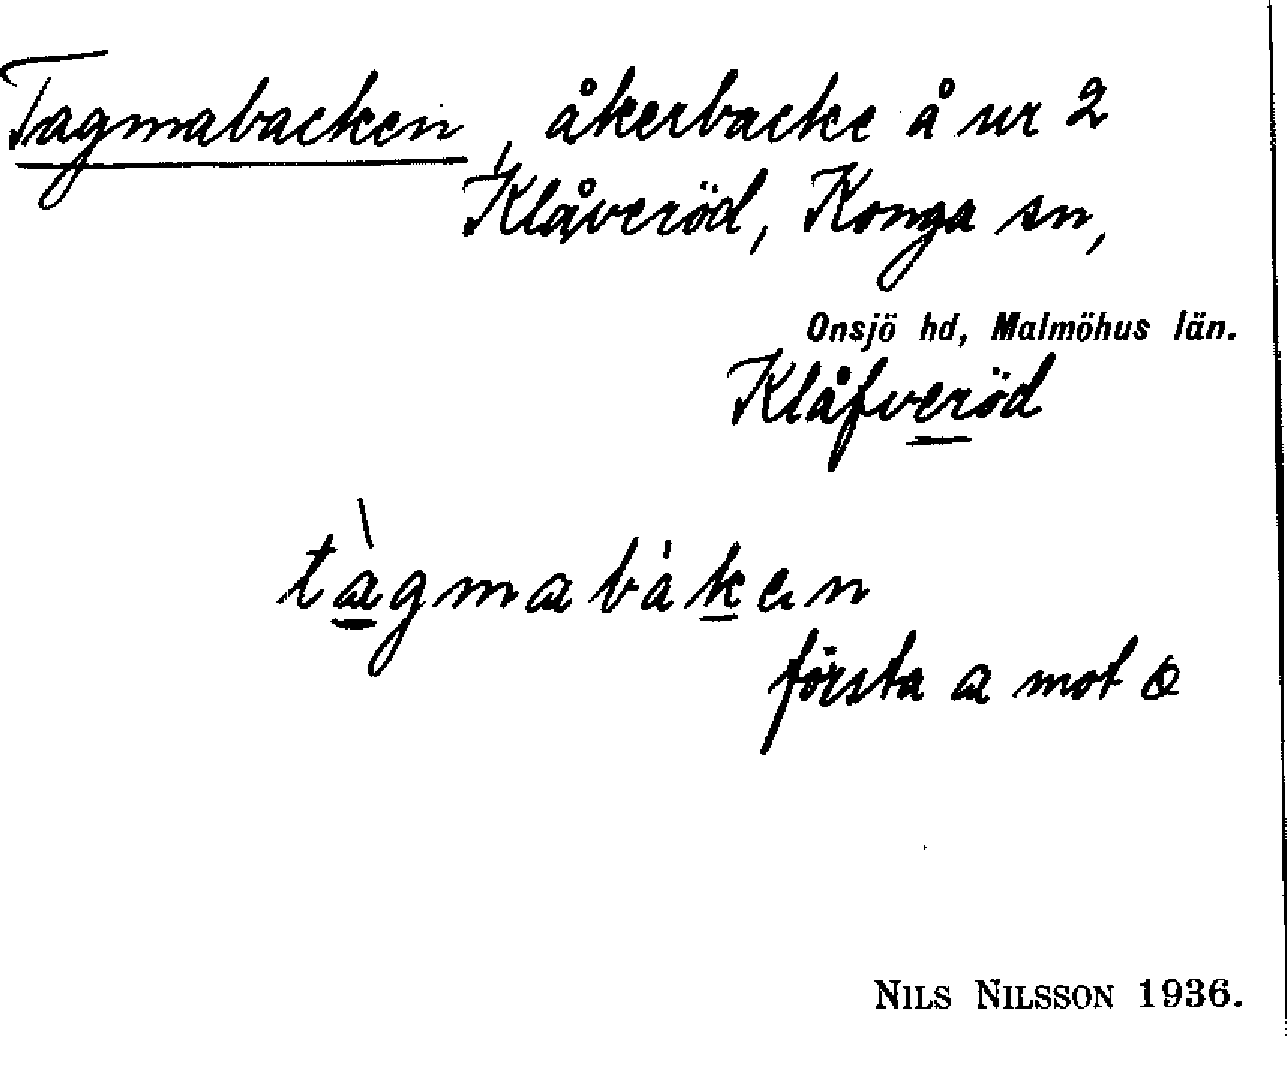 Tagmabacken, åkerbacke å nr 2
Klåveröd, Konga sn,
Onsjö hd, Malmöhus län.
Klåfveröd
tàgmabáken
första a mot o
NILS NILSSON 1936.